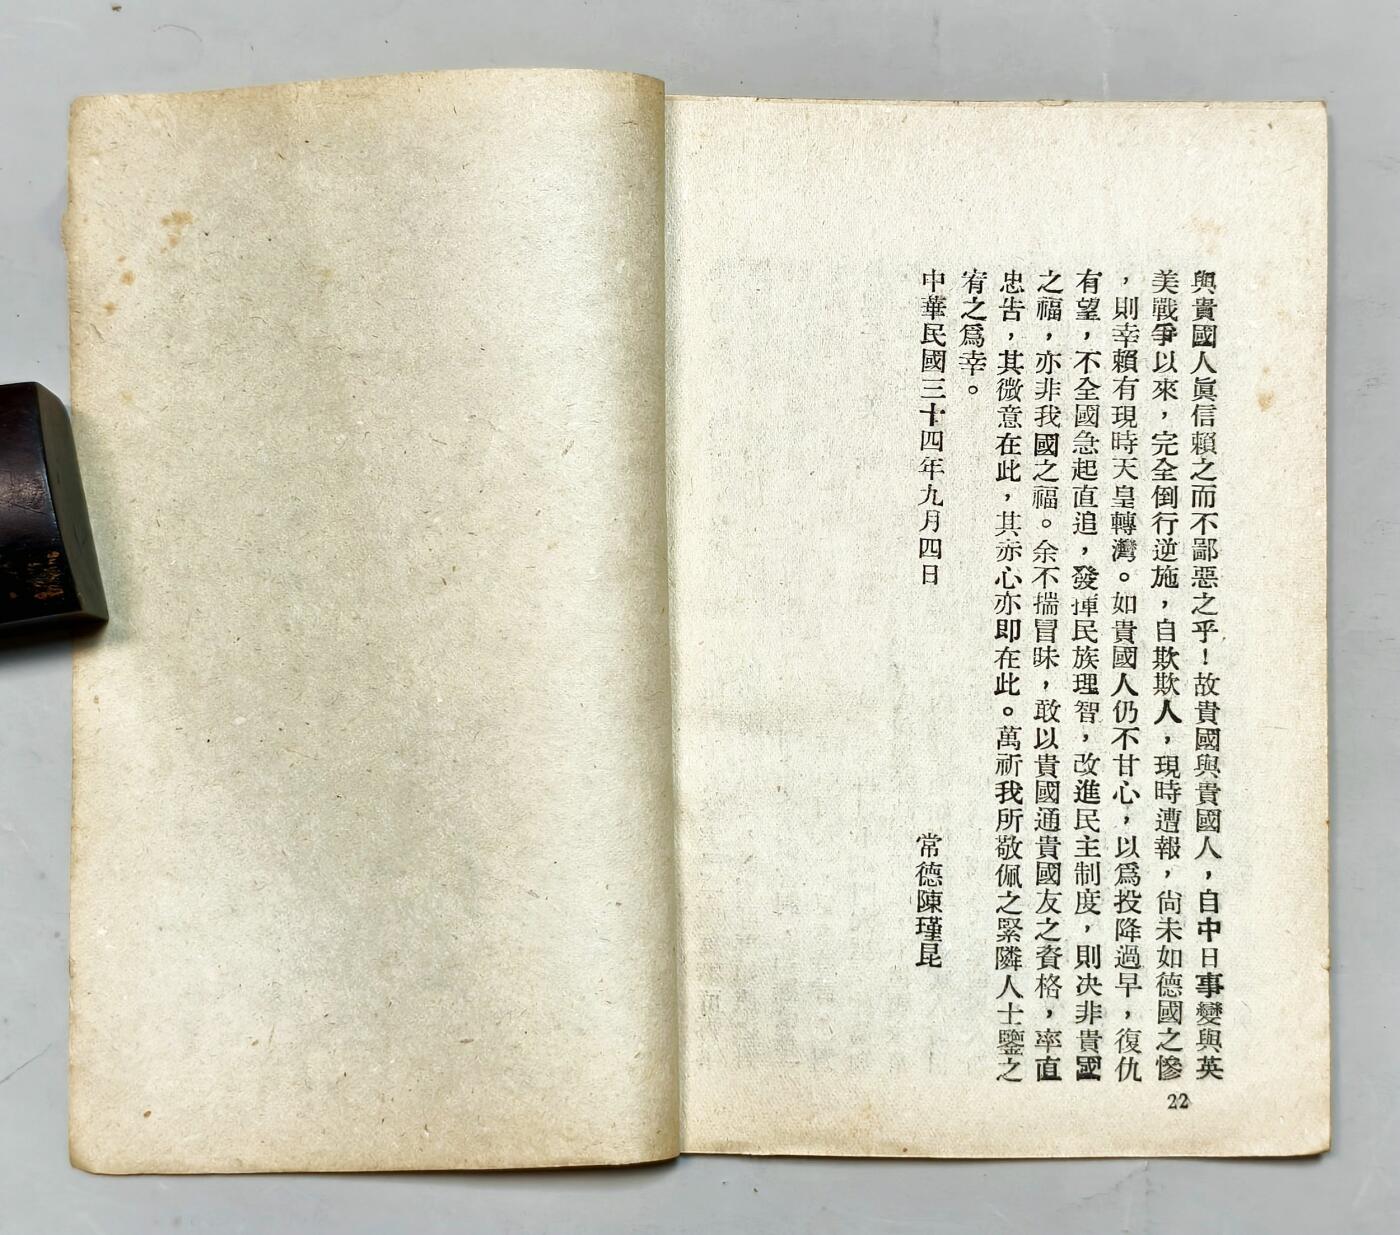 與貴國人眞信賴之而不鄙惡之乎！故貴國與貴國人，自中日事變與英
美戰爭以來，完全倒行逆施，自欺欺人，現時遭報，尙未如德國之慘
，則幸賴有現時天皇轉灣。如貴國人仍不甘心，以爲投降過早，復仇
有望，不全國急起直追，發揮民族理智，改進民主制度，則决非貴國
之福，亦非我國之福。余不揣冒昧，敢以貴國通貴國友之資格，率直
忠告，其微意在此，其赤心亦即在此。萬祈我所敬佩之緊隣人士鑒之
宥之爲幸。
中華民國三十四年九月四日
常德陳瑾昆
22